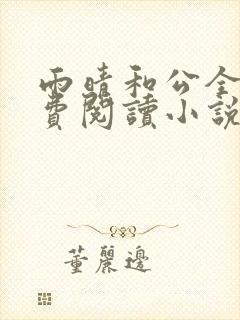 雨晴和公全
費閱讀小說
董麗邊